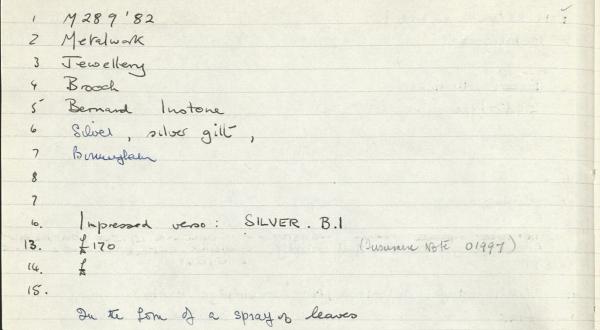 1 M 289 '82
2 Metalwork
3 Jewellery
4 Brooch
5 Bernard Instone
6 Silver, silver gilt,
7 Birmingham
8
7
10. Impressed verso: SILVER. B.I
13. £170 (Insurance Note 01997)
14. £
15.
In the form of a spray of leaves